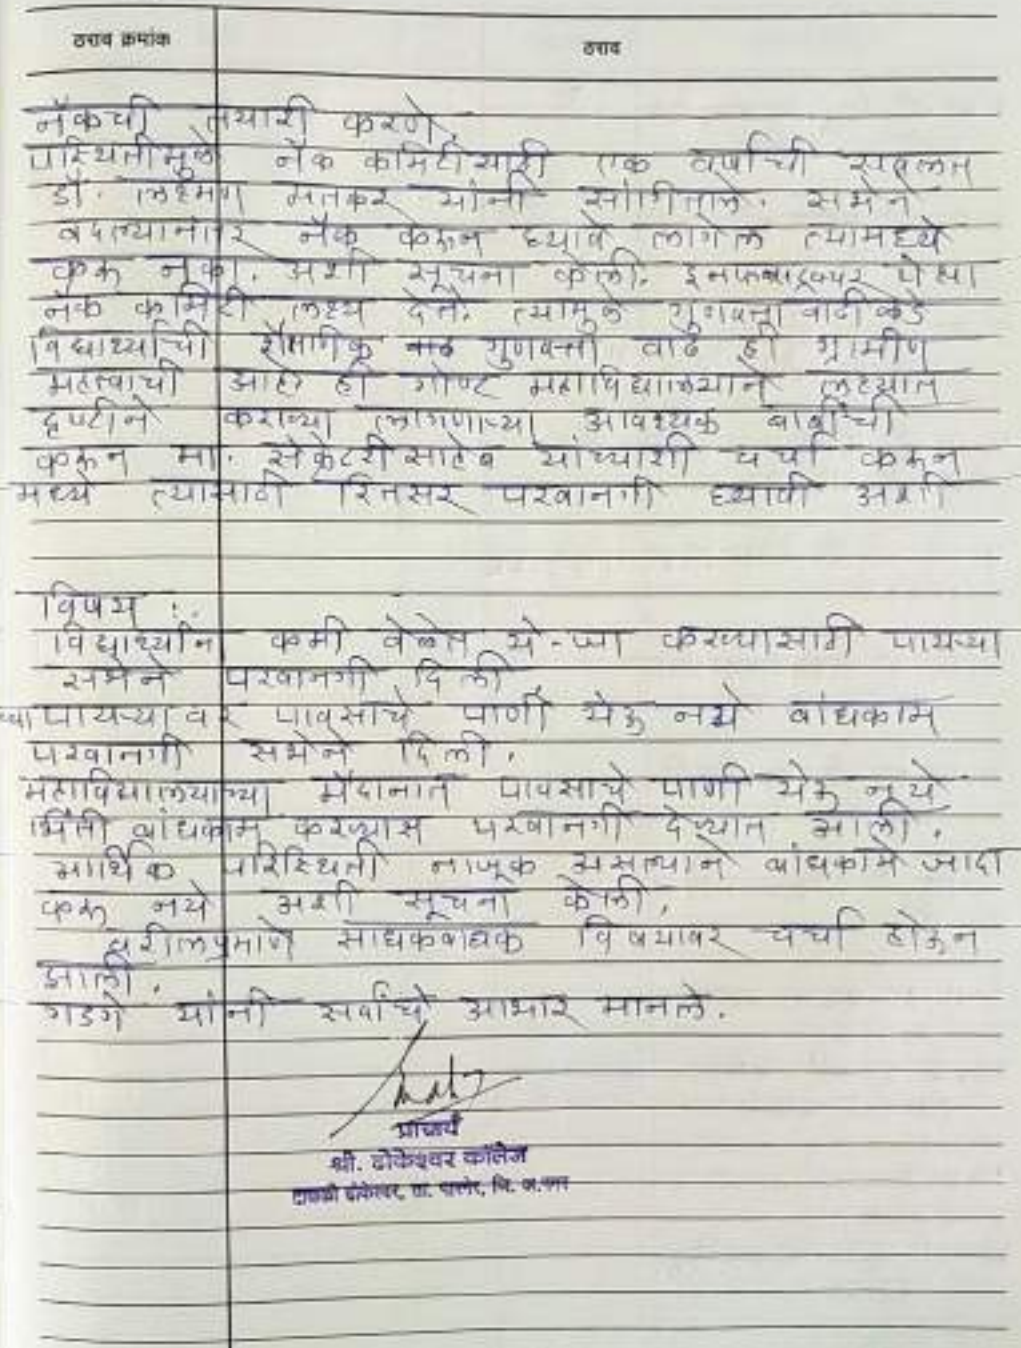 ठराव क्रमांक ठराव
नॅकची तयारी करणे.
परिस्थितीमुळे नॅक कमिटीसाठी एक वर्षाची सवलत
डॉ. लक्ष्मण मतकर यांनी सांगितले. सभेने
बदल्यानंतर नॅक करून घ्यावे लागेल त्यामध्ये
करू नका. अशी सूचना केली. इनफ्रास्ट्रक्चर पेक्षा
नॅक कमिटी लक्ष्य देते. त्यामुळे गुणवत्ता वाढीकडे
विद्यार्थ्यांची शैक्षणिक गुणवत्ता वाढ ही ग्रामीण
महत्वाची आहे ही गोष्ट महाविद्यालयाने लक्ष्यात
दृष्टीने कराव्या लागणाऱ्या आवश्यक बाबींची
करून मा. सेक्रेटरी साहेब यांच्याशी चर्चा करून
मध्ये त्यासाठी रितसर परवानगी घ्यावी अशी
विषय :.
विद्यार्थ्यांन कमी वेळेत ये-जा करण्यासाठी पायऱ्या
सभेने परवानगी दिली.
च्या पायऱ्यावर पावसाचे पाणी येऊ नये बांधकाम
परवानगी सभेने दिली.
महाविद्यालयाच्या मैदानात पावसाचे पाणी येऊ नये
भिंती बांधकाम करण्यास परवानगी देण्यात आली.
आर्थिक परिस्थिती नाजूक असल्याने बांधकामे जादा
करू नये अशी सूचना केली.
वरीलप्रमाणे साधकबाधक विषयावर चर्चा होऊन
झाली.
गडगे यांनी सर्वांचे आभार मानले.
प्राचार्य
श्री. ढोकेश्वर कॉलेज
टाकळी ढोकेश्वर, ता. पारनेर, जि. अ.नगर